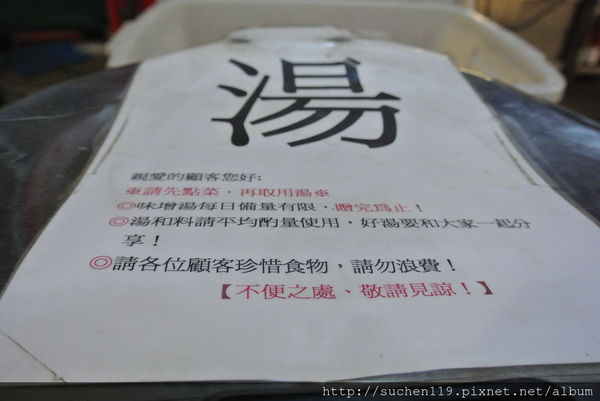 湯
親愛的顧客您好:
※請先點菜，再取用湯※
◎味增湯每日備量有限，贈完為止！
◎湯和料請平均酌量使用，好湯要和大家一起分
享！
◎請各位顧客珍惜食物，請勿浪費！
【不便之處、敬請見諒！】
http://suchen119.pixnet.net/album